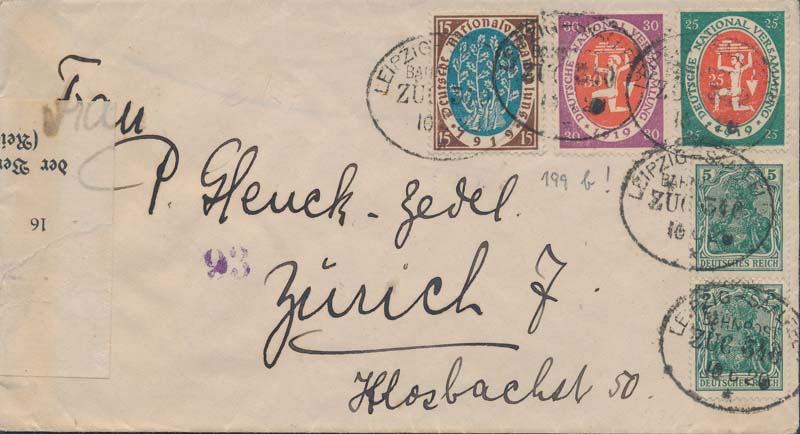 15
Deutsche Nationalversammlung
1919
15 15
30 30
DEUTSCHE NATIONAL VERSAMMLUNG
1919
30 30
25 25
DEUTSCHE NATIONAL VERSAMMLUNG
25
1919
25 25
LEIPZIG
ZUG
10
Frau
P. Gleuck-Zedel.
199 b!
LEIPZIG
BAHN
ZUG
10
5 5
DEUTSCHES REICH
der
16
93
Zürich 7.
LEIPZIG
BAHNPOST
ZUG
5
DEUTSCHES REICH
Klosbachst 50.